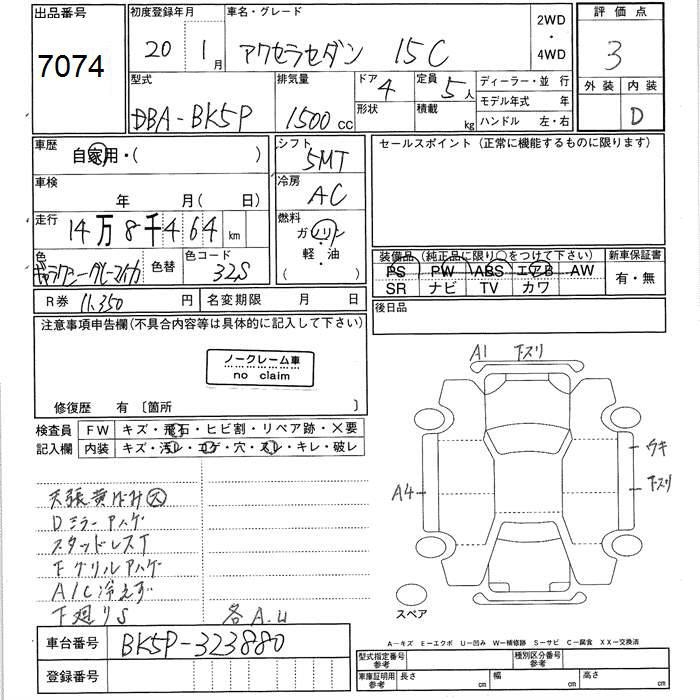 出品番号 初度登録年月 車名・グレード 2WD ・ 4WD 評価点
7074 20 1月 アクセラセダン 15C 3
型式 排気量 ドア 4 定員 5人 ディーラー・並行 外装 内装
DBA-BK5P 1500cc 形状 積載 kg モデル年式 年 D
ハンドル 左・右
車歴 自家用・( ) シフト 5MT セールスポイント (正常に機能するものに限ります)
車検 年 月( 日) 冷房 AC
走行 14万8千464km 燃料 ガソリン ・ 軽・油
色 ギャラクシーグレーマイカ 色替 色コード 32S 装備品 (純正品に限り○をつけて下さい) 新車保証書
PS PW ABS エアB AW 有・無
SR ナビ TV カワ
R券 11,350円 名変期限 月 日 後日品
注意事項申告欄(不具合内容等は具体的に記入して下さい)
ノークレーム車
no claim
修復歴 有 〔箇所 〕
A1 下スリ
検査員 FW キズ・飛石・ヒビ割・リペア跡・×要
記入欄 内装 キズ・汚レ・コゲ・穴・スレ・キレ・破レ
ウキ
A4 下スリ
天張黄バミ大
Dミラーアハゲ
スタッドレスT
Fグリルアハゲ
A/C冷えず
下廻りS 各A.U
スペア
A−キズ E−エクボ U−凹み W−補修跡 S−サビ C−腐食 XX−交換済
車台番号 BK5P-323880
型式指定番号 参考 種別区分番号 参考
登録番号 車庫証明用 参考 長さ cm 幅 cm 高さ cm